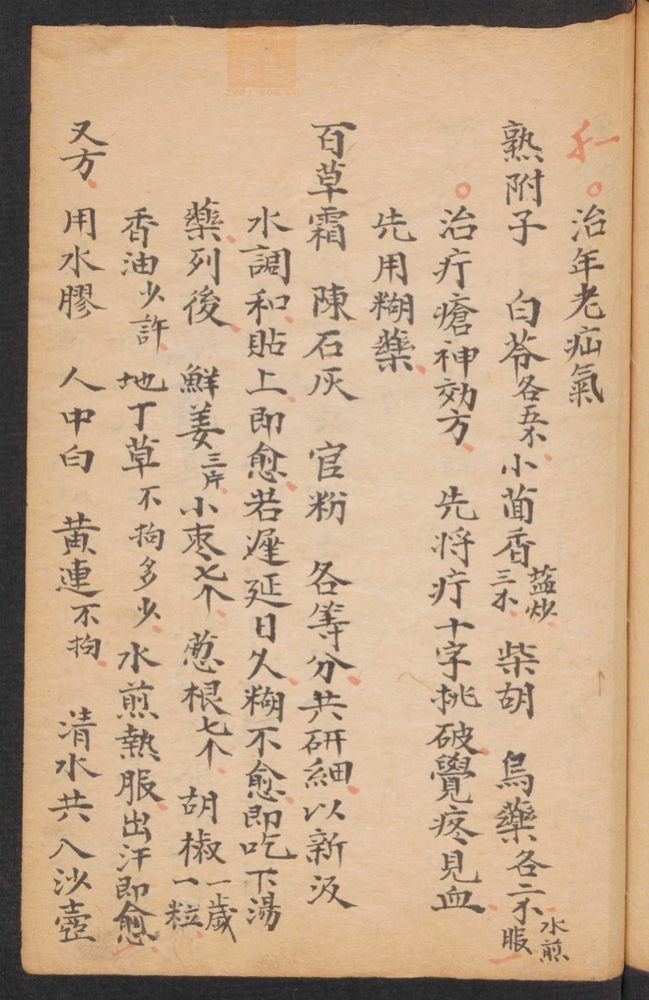 治年老疝氣
熟附子 白苓各五不小茴香盐炒三不 柴胡 烏藥各二不水煎服
治疔瘡神効方 先将疔十字挑破覺疼見血
先用糊藥
百草霜 陳石灰 官粉 各等分共研細以新汲
水調和貼上即愈若遲延日久糊不愈即吃下湯
藥列後 鮮姜三片小枣七个 葱根七个 胡椒一歲一粒
香油少許 地丁草不拘多少水煎熱服出汗即愈
又方 用水膠 人中白 黄連不拘 清水共入沙壺